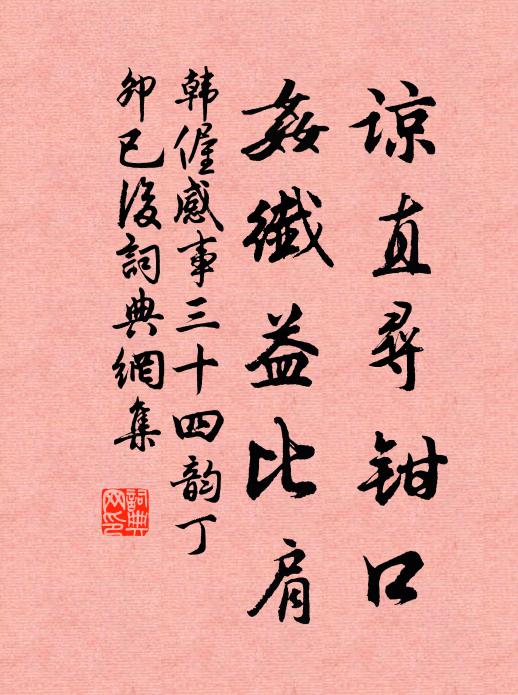 谅直寻钳口
姦纖益比肩
韩偓感事三十四韵丁
卯已後詞典網集
詞典网印